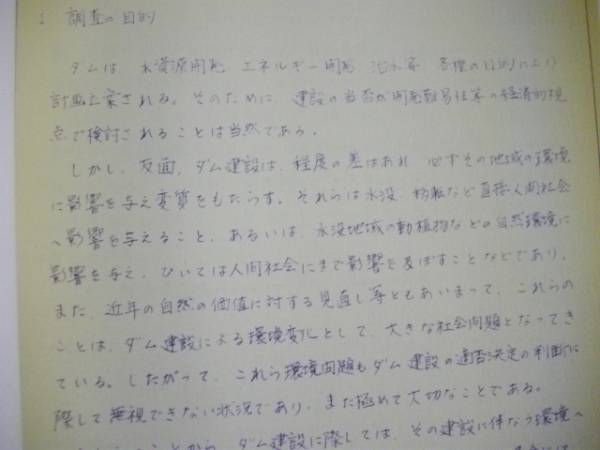 1 調査の目的
ダムは、水資源開発、エネルギー開発、治水等、各種の目的により
計画立案される。そのために、建設の当否が開発難易性等の経済的視
点で検討されることは当然である。
しかし、反面、ダム建設は、程度の差はあれ、必ずその地域の環境
に影響を与え変質をもたらす。それらは水没、移転など直接人間社会
へ影響を与えること、あるいは、水没地域の動植物などの自然環境に
影響を与え、ひいては人間社会にまで影響を及ぼすことなどであり、
また、近年の自然の価値に対する見直し等ともあいまって、これらの
ことは、ダム建設による環境変化として、大きな社会問題となってき
ている。したがって、これら環境問題もダム建設の適否決定の判断に
際して無視できない状況であり、また極めて大切なことである。
ことから、ダム建設に際しては、その建設に伴なう環境へ